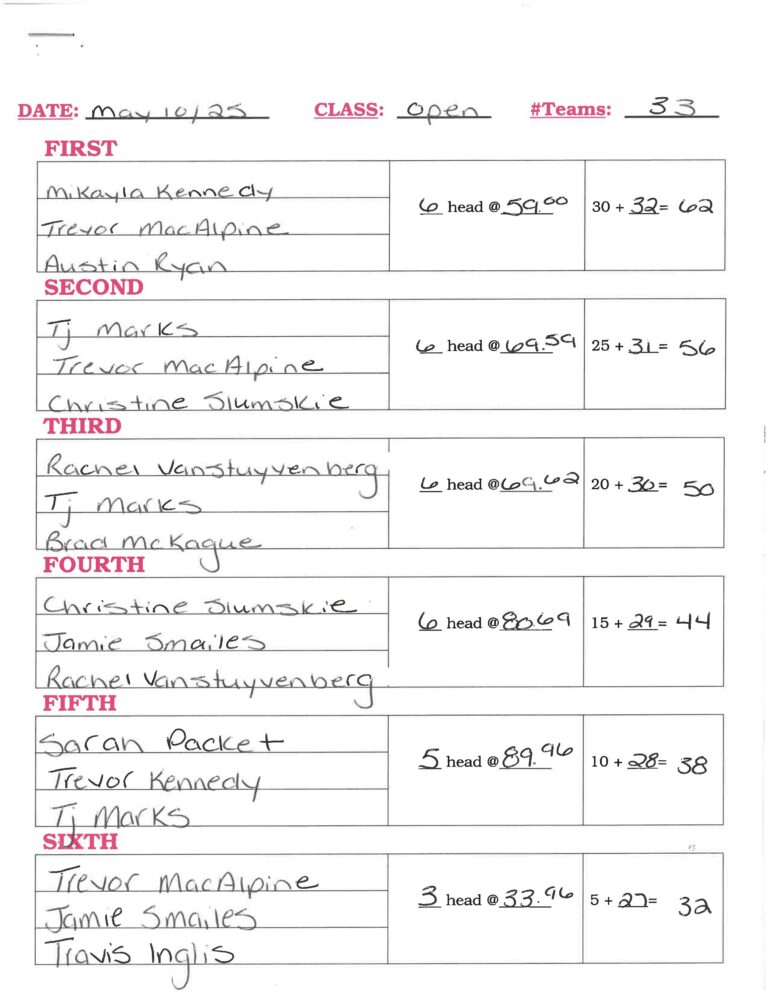 DATE: May 10/25 CLASS: Open #Teams: 33
FIRST
Mikayla Kennedy
Trevor MacAlpine
Austin Ryan
6 head @ 59.00 30 + 32 = 62
SECOND
Tj Marks
Trevor MacAlpine
Christine Slumskie
6 head @ 69.59 25 + 31 = 56
THIRD
Rachel Vanstuyvenberg
Tj Marks
Brad McKague
6 head @ 69.62 20 + 30 = 50
FOURTH
Christine Slumskie
Jamie Smailes
Rachel Vanstuyvenberg
6 head @ 80.69 15 + 29 = 44
FIFTH
Sarah Packet
Trevor Kennedy
Tj Marks
5 head @ 89.96 10 + 28 = 38
SIXTH
Trevor MacAlpine
Jamie Smailes
Travis Inglis
3 head @ 33.96 5 + 27 = 32